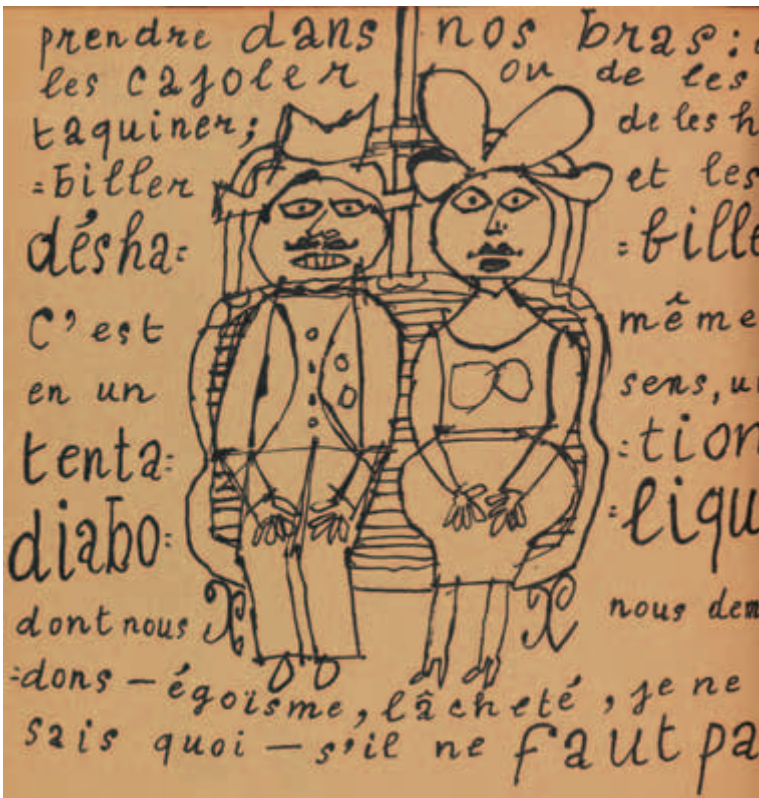 prendre dans nos bras:
les cajoler ou de les
taquiner; de les h
=biller et les
désha= =bille
C'est même
en un sens, u
tenta= =tion
diabo= =liqu
dont nous nous dem
=dons — égoïsme, lâcheté, je ne
sais quoi — s'il ne faut pa